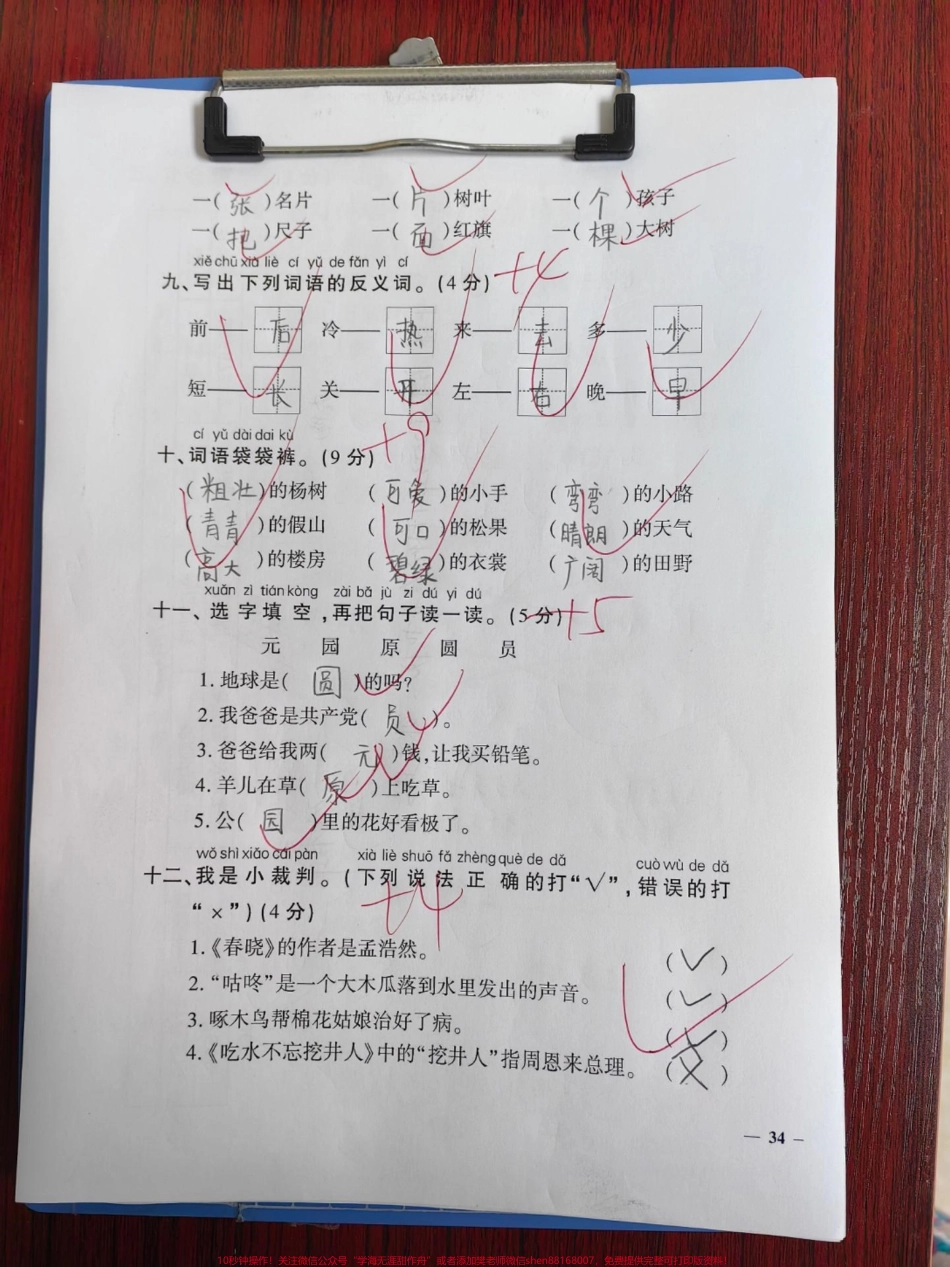 一(张)名片 一(片)树叶 一(个)孩子
一(把)尺子 一(面)红旗 一(棵)大树
xiě chū xià liè cí yǔ de fǎn yì cí
九、写出下列词语的反义词。(4分) +4
前——后 冷——热 来——去 多——少
短——长 关——开 左——右 晚——早
cí yǔ dài dai kù
十、词语袋袋裤。(9分) +9
(粗壮)的杨树 (可爱)的小手 (弯弯)的小路
(青青)的假山 (可口)的松果 (晴朗)的天气
(高大)的楼房 (碧绿)的衣裳 (广阔)的田野
xuǎn zì tián kòng zài bǎ jù zi dú yi dú
十一、选字填空,再把句子读一读。(5分) +5
元 园 原 圆 员
1.地球是(圆)的吗?
2.我爸爸是共产党(员)。
3.爸爸给我两(元)钱,让我买铅笔。
4.羊儿在草(原)上吃草。
5.公(园)里的花好看极了。
wǒ shì xiǎo cái pàn xià liè shuō fǎ zhèng què de dǎ cuò wù de dǎ
十二、我是小裁判。(下列说法正确的打“√”,错误的打
“×”)(4分) +4
1.《春晓》的作者是孟浩然。 (√)
2.“咕咚”是一个大木瓜落到水里发出的声音。 (√)
3.啄木鸟帮棉花姑娘治好了病。 (×)
4.《吃水不忘挖井人》中的“挖井人”指周恩来总理。 (×)
— 34 —
10秒钟操作!关注微信公众号“学海无涯甜作舟”或者添加樊老师微信shen88168007,免费提供完整可打印版资料!